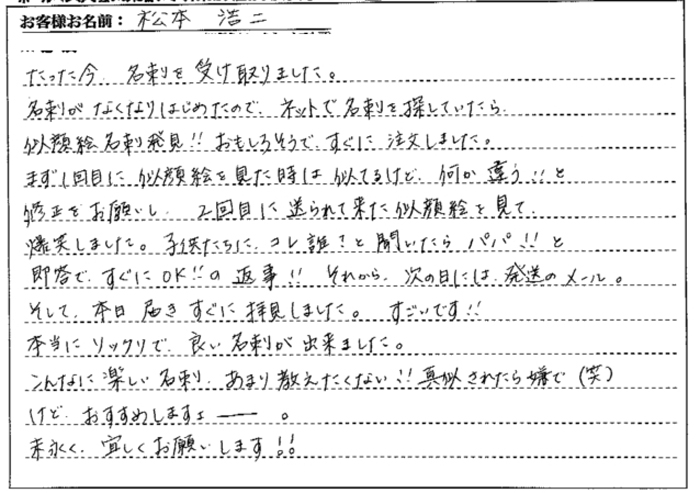 お客様お名前： 松本 浩二
たった今、名刺を受け取りました。
名刺がなくなりはじめたので、ネットで名刺を探していたら、
似顔絵名刺発見!! おもしろそうで、すぐに注文しました。
まず1回目に似顔絵を見た時は似てるけど、何か違う!!と
修正をお願いし、2回目に送られて来た似顔絵を見て、
爆笑しました。子供たちに、コレ誰?と聞いたらパパ!!と
即答で、すぐにOK!!の返事!! それから、次の日には、発送のメール。
そして、本日届きすぐに拝見しました。 すごいです!!
本当にソックリで、良い名刺が出来ました。
こんなに楽しい名刺、あまり教えたくない!!真似されたら嫌で(笑)
けど、おすすめしますよ――。
末永く、宜しくお願いします!!